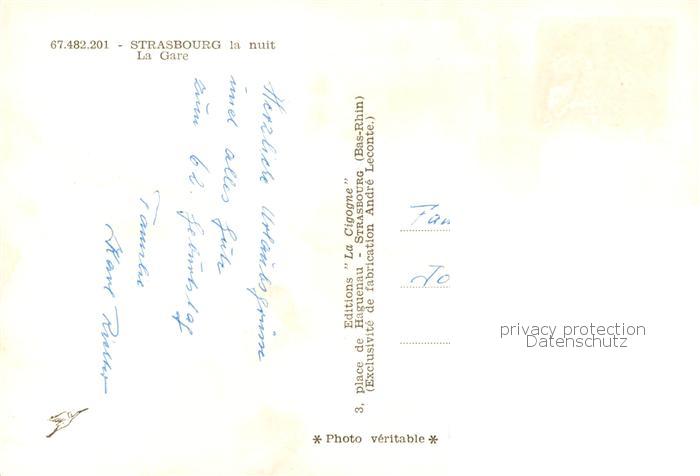 67.482.201 - STRASBOURG la nuit
La Gare
Herzliche Urlaubsgrüsse
und alles Gute
zum 62. Geburtstag
Familie
Karl
Editions "La Cigogne"
3, place de Haguenau - STRASBOURG (Bas-Rhin)
(Exclusivité de fabrication André Leconte.)
Fam
Jo
privacy protection
Datenschutz
* Photo véritable *